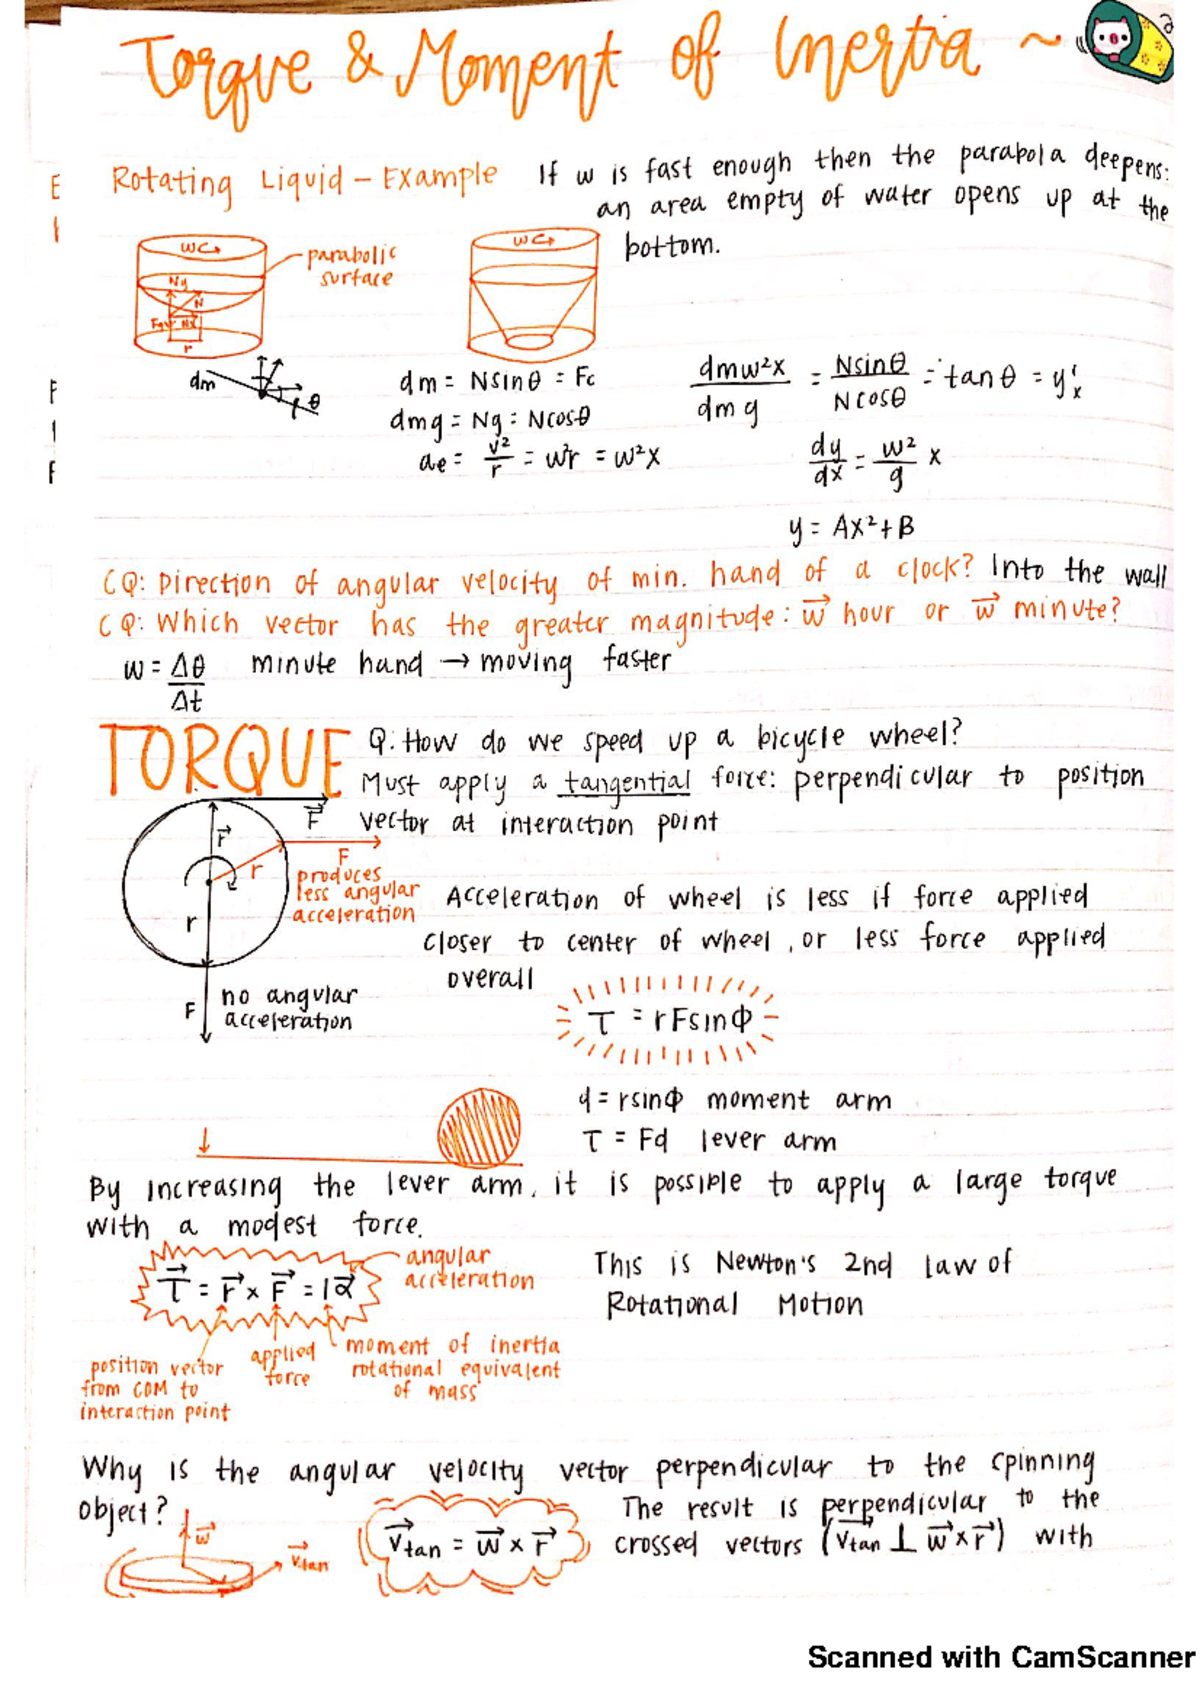 Torque & Moment of Inertia ~
Rotating Liquid - Example If w is fast enough then the parabola deepens:
an area empty of water opens up at the
bottom.
w
parabolic
surface
Ny
N
Nx
r
w
dm
θ
dm = Nsinθ = Fc
dmg = Ng = Ncosθ
ae = v²/r = w²r = w²x
dmw²x/dmg = Nsinθ/Ncosθ = tanθ = y'x
dy/dx = w²/g x
y = Ax²+B
CQ: Direction of angular velocity of min. hand of a clock? Into the wall
CQ: Which vector has the greater magnitude: w⃗ hour or w⃗ minute?
w = Δθ/Δt minute hand → moving faster
TORQUE Q: How do we speed up a bicycle wheel?
Must apply a tangential force: perpendicular to position
vector at interaction point
F⃗
r⃗
r
F
produces
less angular
acceleration
r
F
no angular
acceleration
Acceleration of wheel is less if force applied
closer to center of wheel, or less force applied
overall
τ = rFsinΦ
d = rsinΦ moment arm
τ = Fd lever arm
By increasing the lever arm, it is possible to apply a large torque
with a modest force.
τ⃗ = r⃗ x F⃗ = Iα⃗
angular
acceleration
This is Newton's 2nd law of
Rotational Motion
position vector
from COM to
interaction point
applied
force
moment of inertia
rotational equivalent
of mass
Why is the angular velocity vector perpendicular to the spinning
object?
w⃗
v⃗tan
v⃗tan = w⃗ x r⃗
The result is perpendicular to the
crossed vectors (v⃗tan ⊥ w⃗ x r⃗) with
E
F
F
Scanned with CamScanner